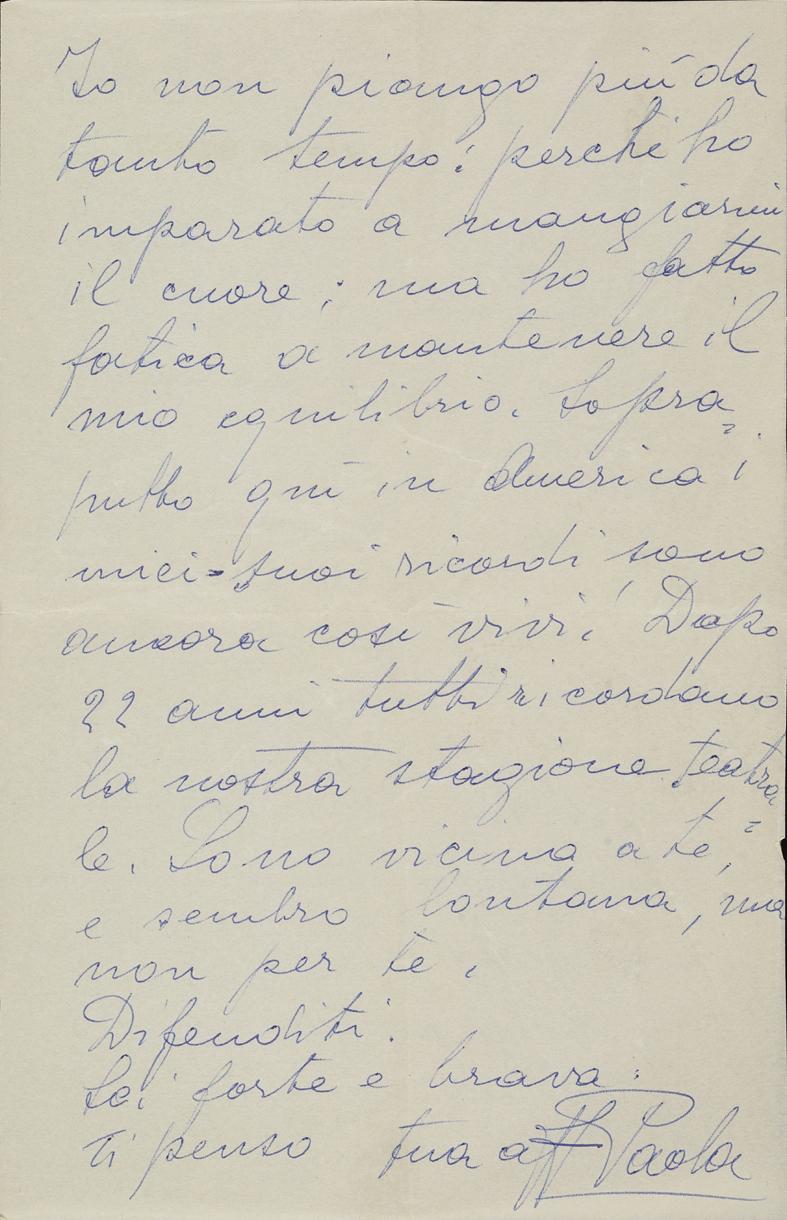 Io non piango più da
tanto tempo: perché ho
imparato a mangiarmi
il cuore; ma ho fatto
fatica a mantenere il
mio equilibrio. Sopra=
tutto quì in America i
miei=tuoi ricordi sono
ancora così vivi! Dopo
22 anni tutti ricordano
la nostra stagione teatra=
le. Sono vicina a te,
e sembro lontana, ma
non per te.
Difenditi.
Sei forte e brava.
Ti penso tua aff Paola